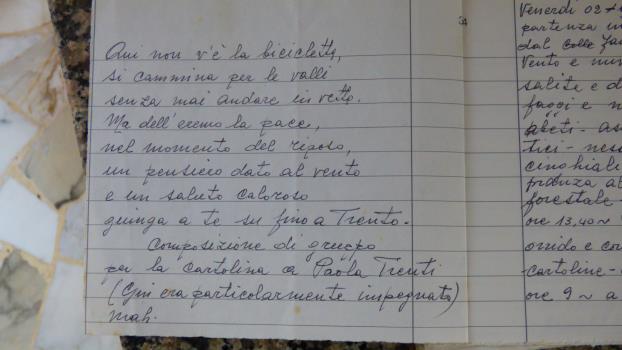 Qui non v'è la bicicletta,
si cammina per le valli
senza mai andare in vetta.
Ma dell'eremo la pace,
nel momento del riposo,
un pensiero dato al vento
e un saluto caloroso
giunga a te su fino a Trento.
Composizione di gruppo
per la cartolina a Paola Trenti
(Gini era particolarmente impegnata)
mah.
31
Venerdì 02
partenza
dal Colle
Vento e
salite e d
faggi e n
abeti - as
tici - nes
cinghiali
forestale -
ore 13,40 ~
orrido e co
cartoline -
ore 9 ~ a